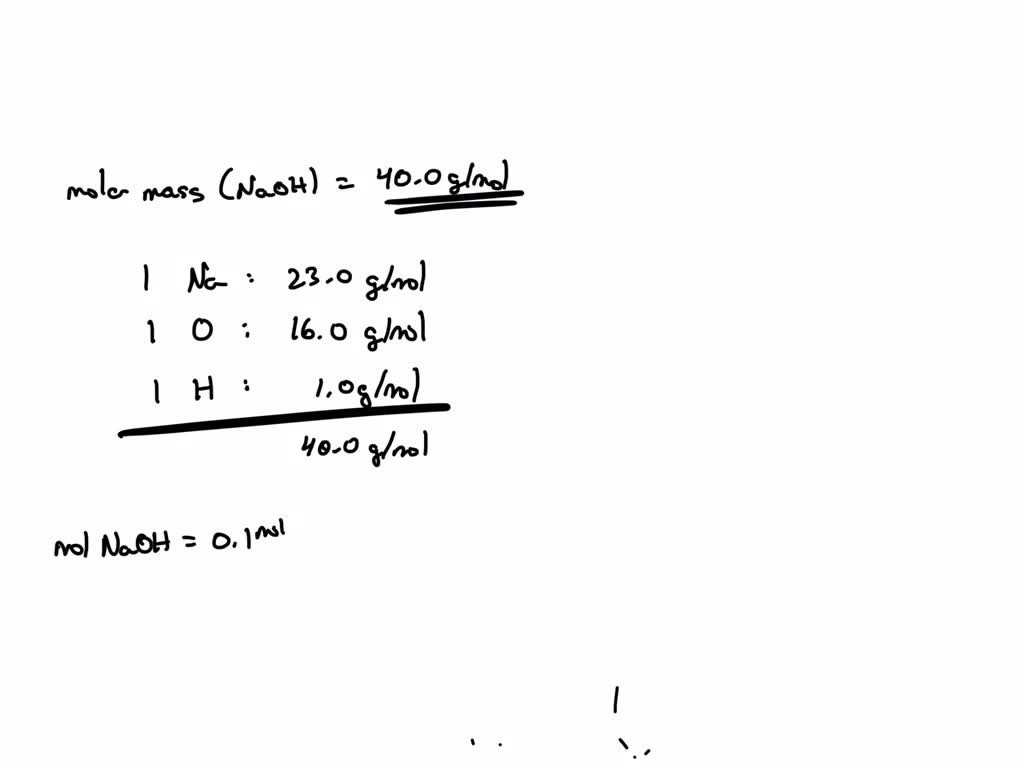 molar mass (NaOH) = 40.0 g/mol
1 Na : 23.0 g/mol
1 O : 16.0 g/mol
1 H : 1.0 g/mol
40.0 g/mol
mol NaOH = 0.1 mol